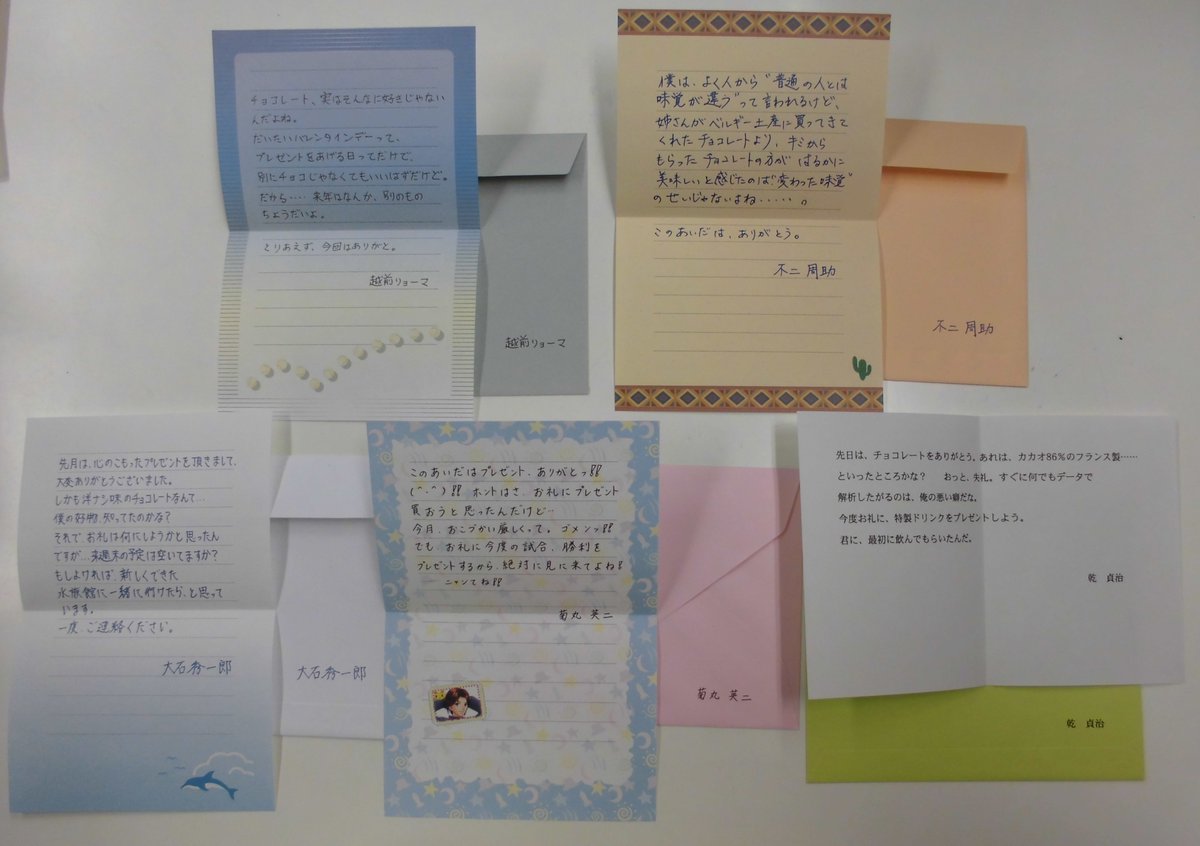 チョコレート、実はそんなに好きじゃない
んだよね。
だいたいバレンタインデーって、
プレゼントをあげる日ってだけで。
別にチョコじゃなくてもいいはずだけど。
だから…… 来年はなんか、別のもの
ちょうだいよ。
とりあえず、今回はありがと。
越前リョーマ
越前リョーマ
僕は、よく人から“普通の人とは
味覚が違う”って言われるけど、
姉さんがベルギー土産に買ってきて
くれたチョコレートより、キミから
もらったチョコレートの方が はるかに
美味しいと感じたのは“変わった味覚”
のせいじゃないよね‥‥‥。
このあいだは、ありがとう。
不二 周助
不二 周助
先月は、心のこもったプレゼントを頂きまして、
大変ありがとうございました。
しかも洋ナシ味のチョコレートなんて…
僕の好物、知ってたのかな?
それで お礼は何にしようかと思ったん
ですが…来週末の予定は空いてますか?
もしよければ、新しくできた
水族館に一緒に行けたら、と思って
います。
一度、ご連絡ください。
大石秀一郎
大石秀一郎
このあいだはプレゼント、ありがとっ!!
(^-^)!! ホントはさ、お礼にプレゼント
買おうと思ったんだけど…
今月、おこづかい厳しくって。ゴメンっ!!
でも、お礼に今度の試合、勝利を
プレゼントするから、絶対に見に来てよね!
ーニャンてね!!
菊丸 英二
菊丸 英二
先日は、チョコレートをありがとう。あれは、カカオ86%のフランス製……
といったところかな? おっと、失礼。すぐに何でもデータで
解析したがるのは、俺の悪い癖だな。
今度お礼に、特製ドリンクをプレゼントしよう。
君に、最初に飲んでもらいたんだ。
乾 貞治
乾 貞治